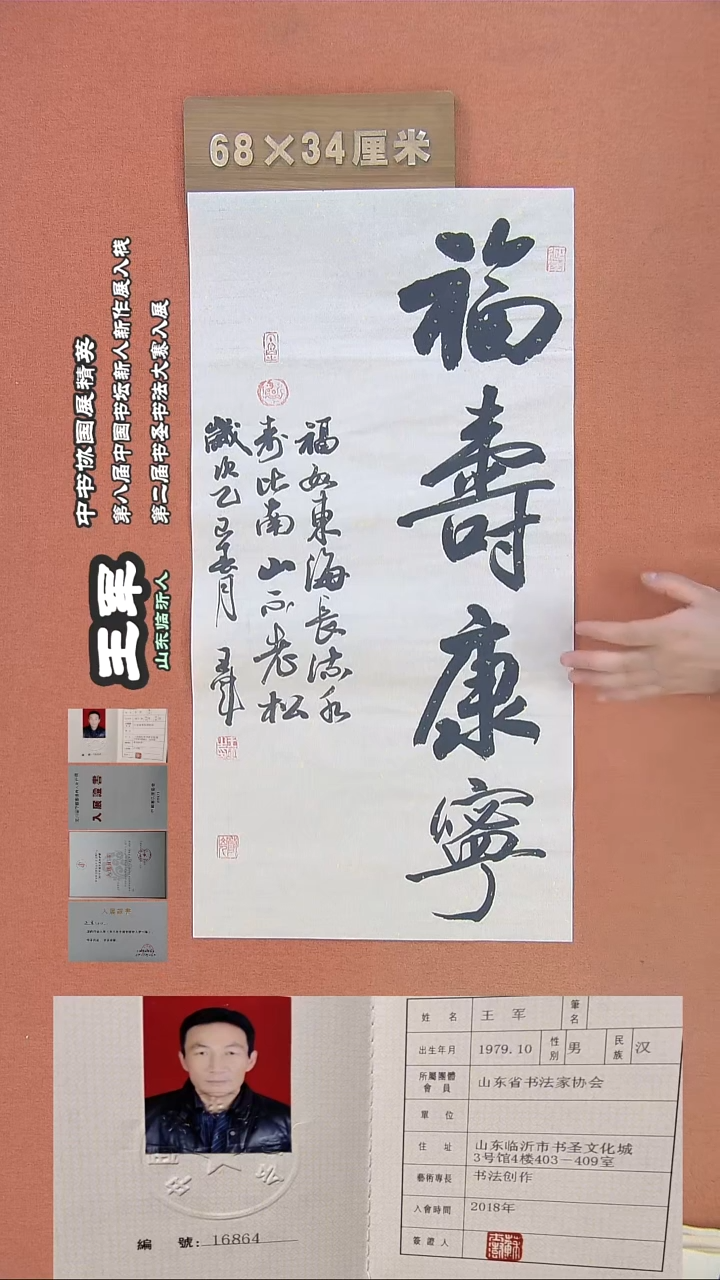 68×34厘米
福壽康寧
福如东海長流水
寿比南山不老松
歲次乙巳春月 王军
中书协国展精英
第八届中国书坛新人新作展入栈
第二届书圣书法大赛入展
王军
山东临沂人
入展證書
姓名 王军 筆名
出生年月 1979.10 性別 男 民族 汉
所屬團體會員 山东省书法家协会
單位
住址 山东临沂市书圣文化城
3号馆4楼403－409室
藝術專長 书法创作
入會時間 2018年
簽證人
編號: 16864